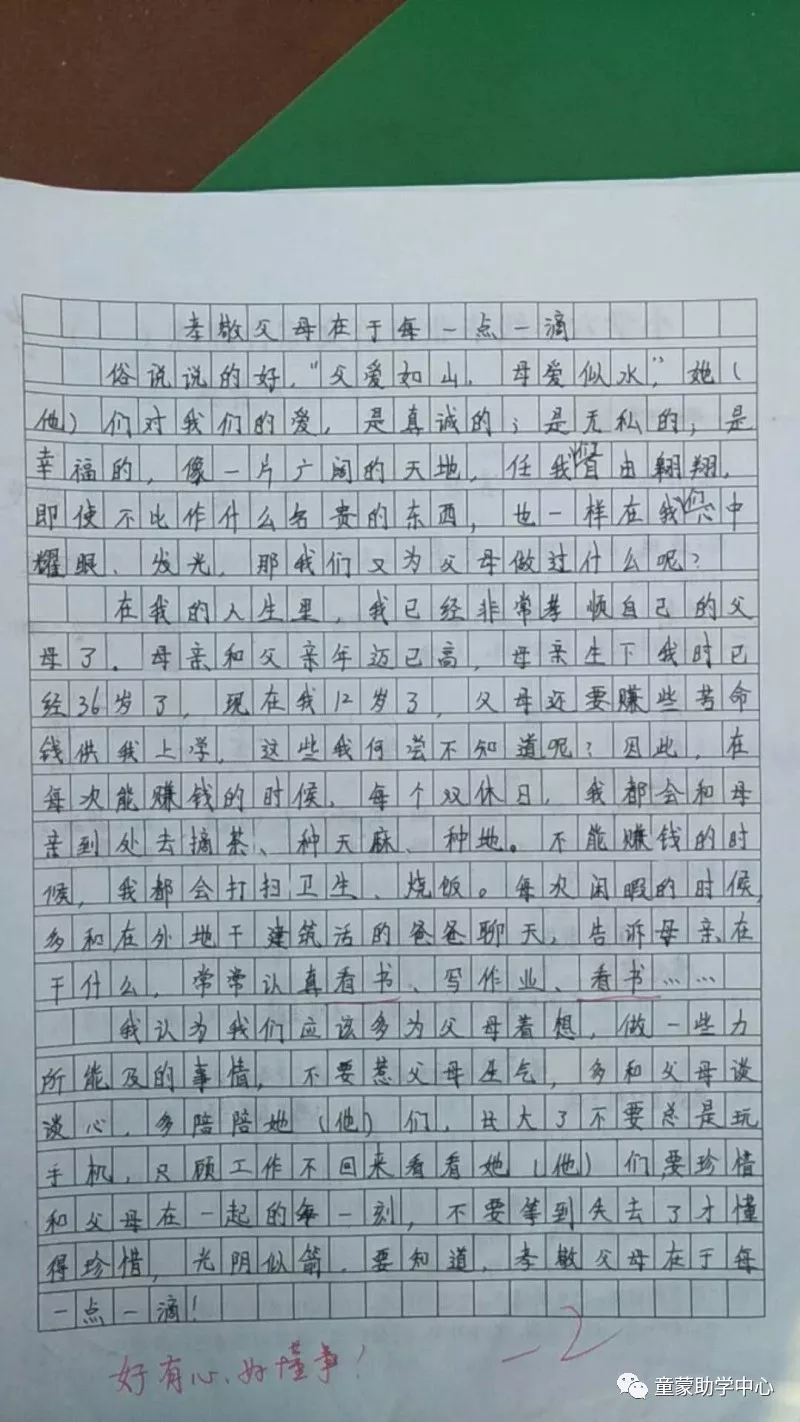 孝敬父母在于每一点一滴
俗说说的好，“父爱如山，母爱似水，”她（
他）们对我们的爱，是真诚的；是无私的；是
幸福的，像一片广阔的天地，任我们自由翱翔，
即使不比作什么名贵的东西，也一样在我们心中
耀眼、发光，那我们又为父母做过什么呢？
在我的人生里，我已经非常孝顺自己的父
母了。母亲和父亲年迈已高，母亲生下我时已
经36岁了，现在我12岁了，父母还要赚些苦命
钱供我上学，这些我何尝不知道呢？因此，在
每次能赚钱的时候，每个双休日，我都会和母
亲到处去摘茶、种天麻、种地。不能赚钱的时
候，我都会打扫卫生、烧饭。每次闲暇的时候，
多和在外地干建筑活的爸爸聊天，告诉母亲在
干什么，常常认真看书、写作业、看书……
我认为我们应该多为父母着想，做一些力
所能及的事情，不要惹父母生气，多和父母谈
谈心，多陪陪她（他）们，长大了不要总是玩
手机，只顾工作不回来看看她（他）们，要珍惜
和父母在一起的每一刻，不要等到失去了才懂
得珍惜，光阴似箭，要知道，孝敬父母在于每
一点一滴！
-2
好有心、好懂事！
童蒙助学中心